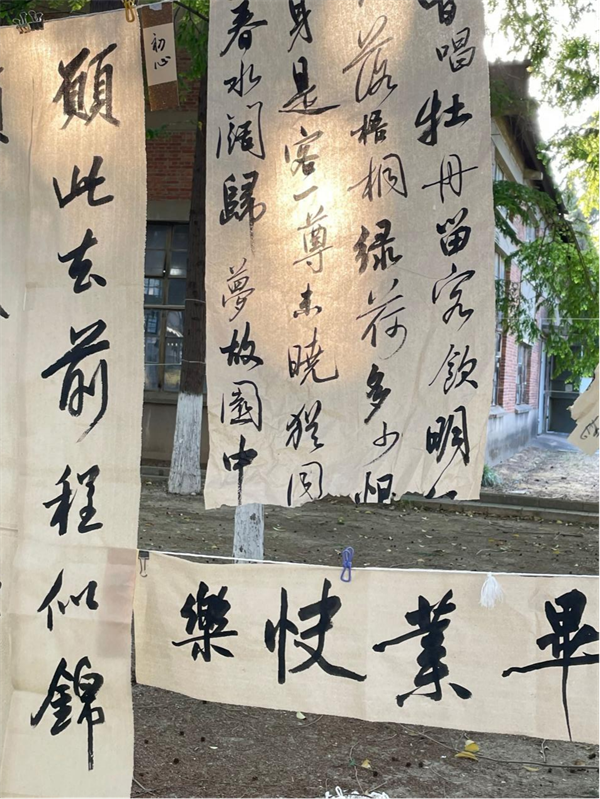 唱牡丹留客飲明
落梧桐绿荷多少恨
身是客一尊未曉猶同
春水闊歸夢故園中
初心
願此去前程似錦
畢業快樂